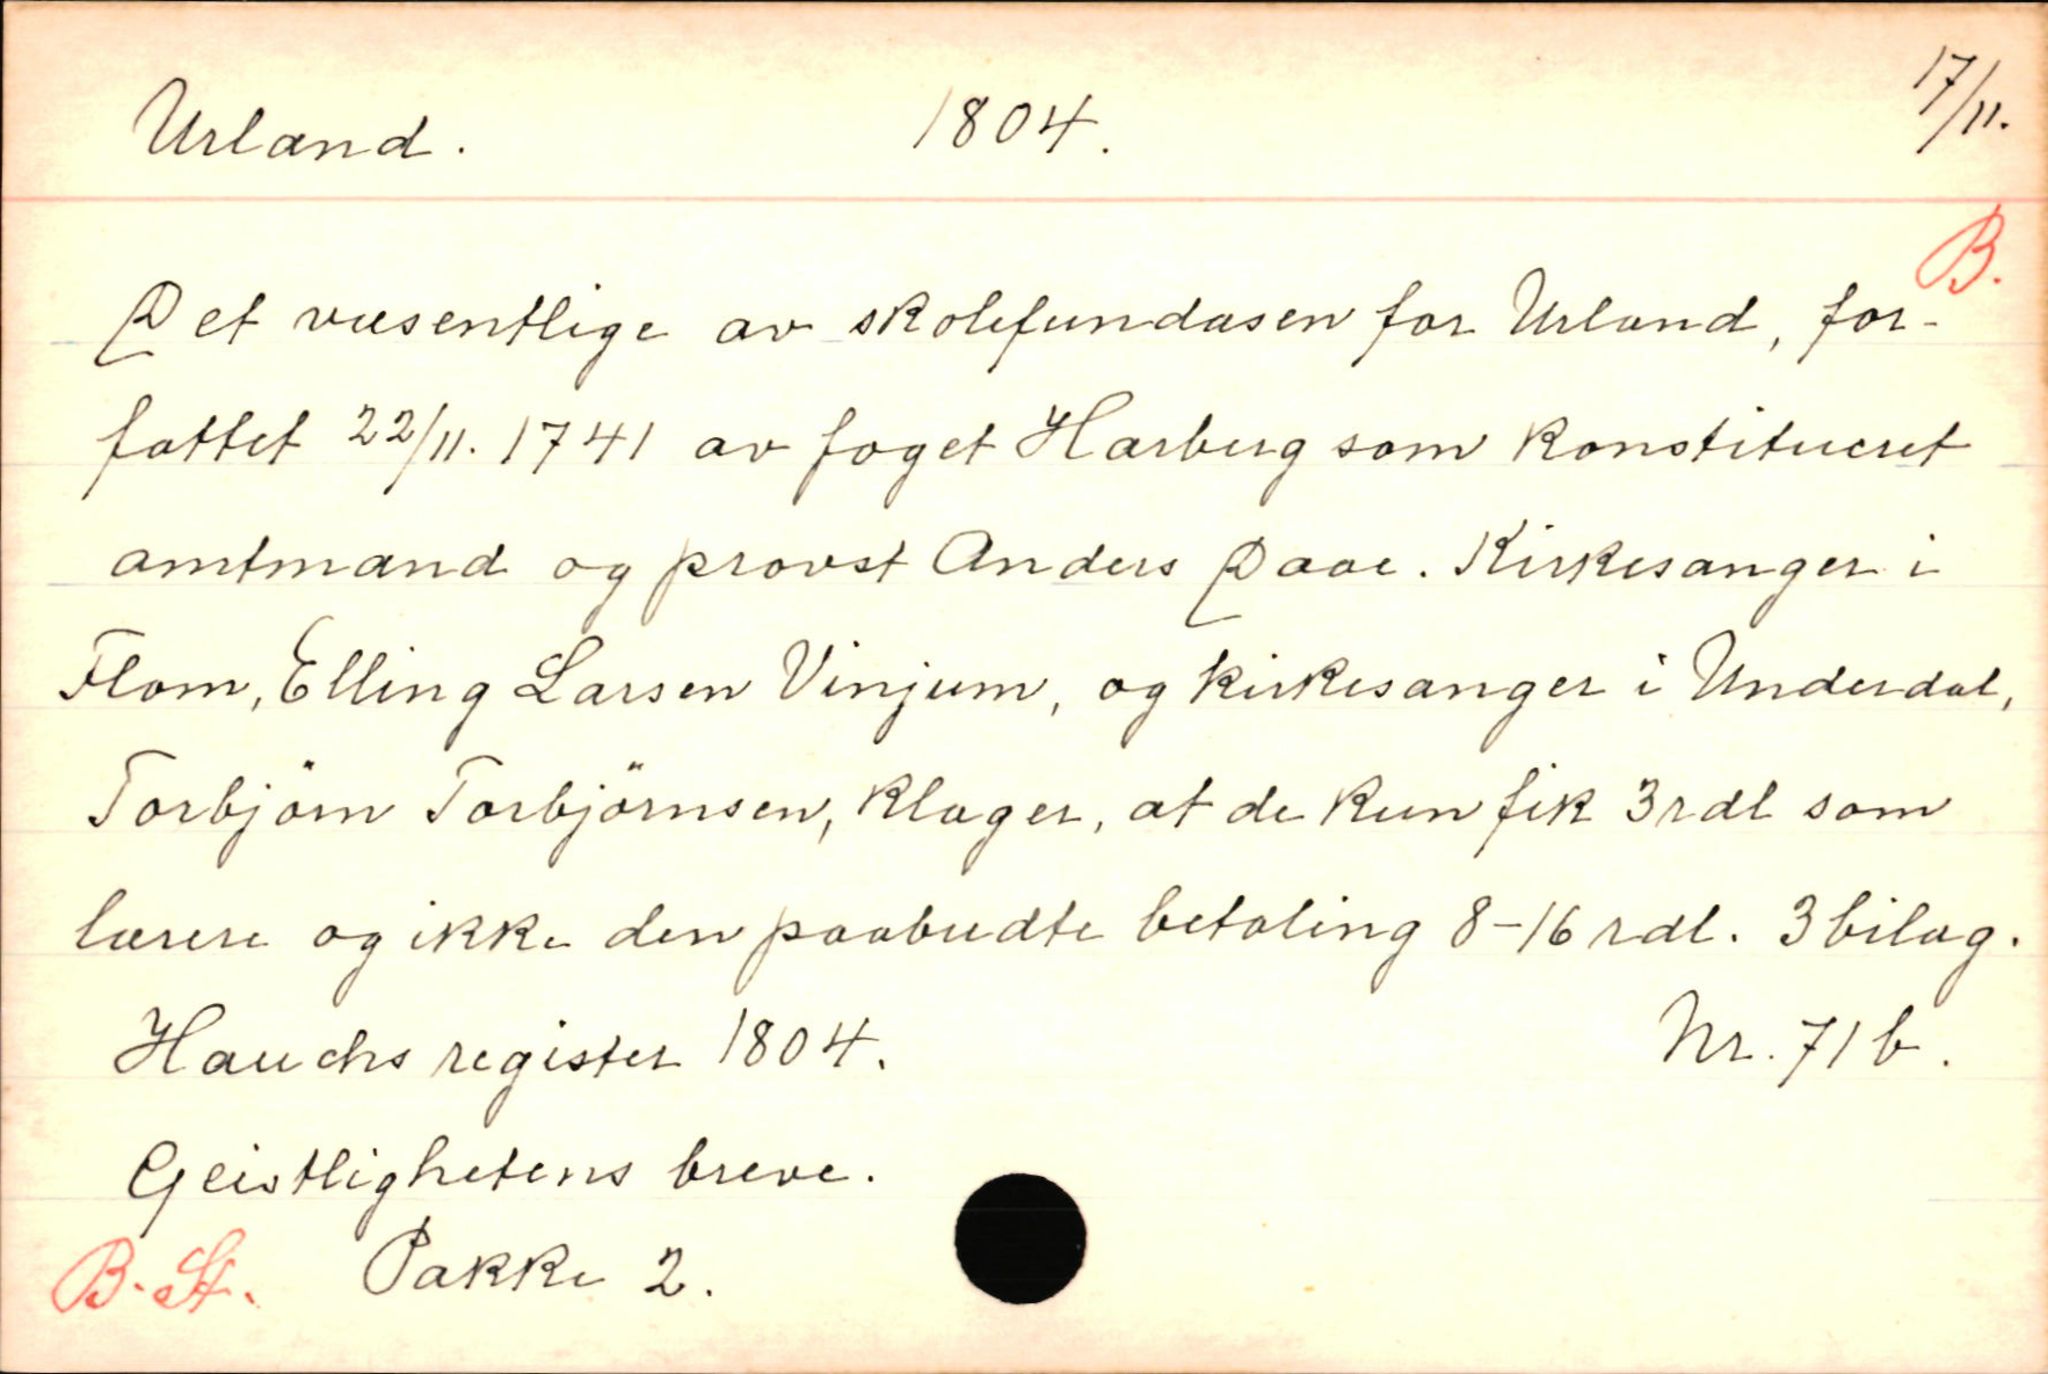 Urland. 1804. 17/11.
B.
Det væsentlige av skolefundasen for Urland, for-
fattet 22/11. 1741 av foget Harberg som konstitueret
amtmand og provst Anders Daae. Kirkesanger i
Flom, Elling Larsen Vinjum, og kirkesanger i Underdal,
Torbjörn Torbjörnsen, klager, at de kun fik 3 rdl som
lærere og ikke den paabudte betaling 8-16 rdl. 3 bilag.
Hauchs register 1804. Nr. 71 b.
Geistlighetens breve.
B. St. Pakke 2.